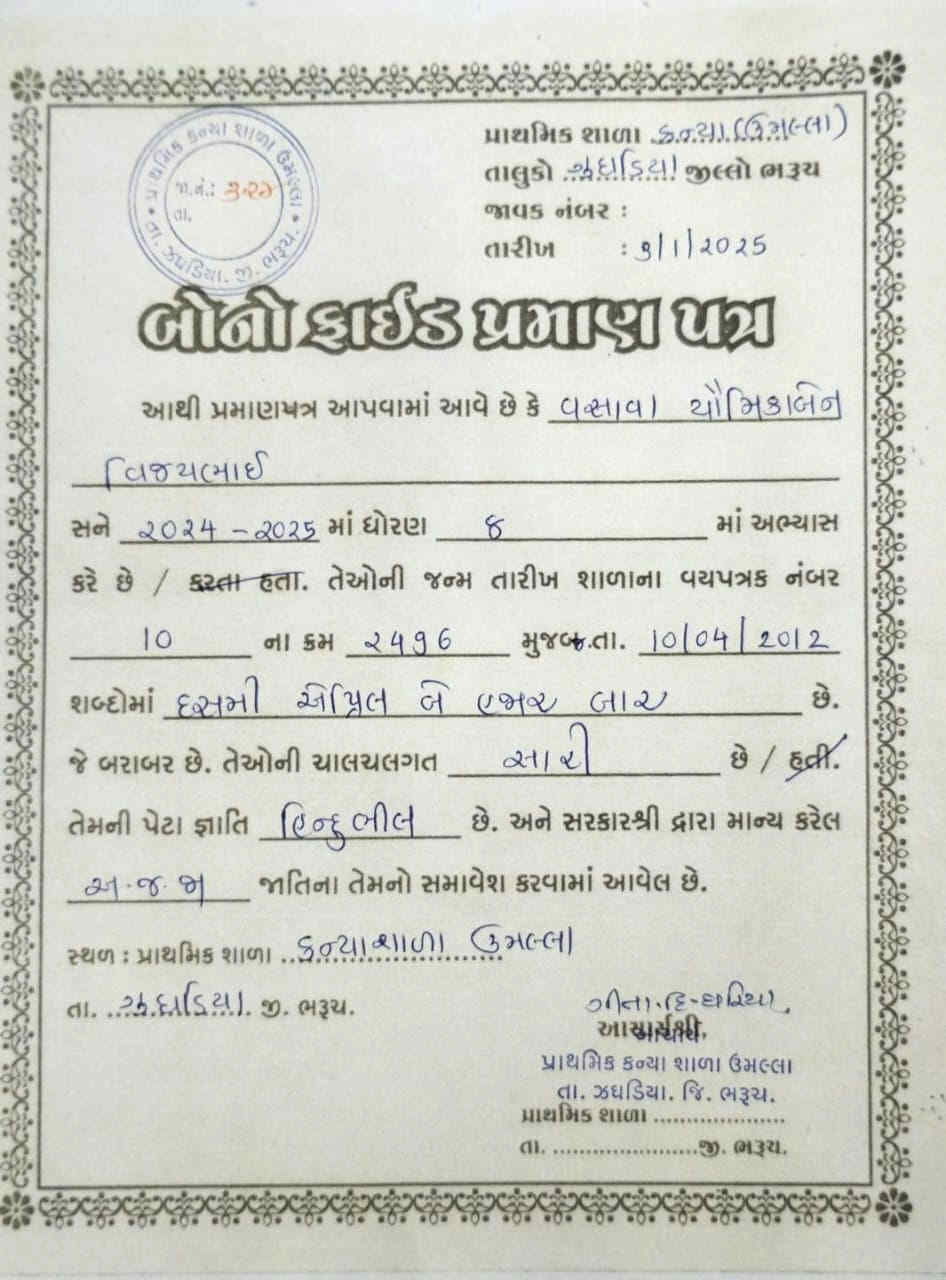 પ્રાથમિક કન્યા શાળા ઉમલ્લા
જા.નં.:
તા.
તા. ઝઘડિયા. જી. ભરૂચ
પ્રાથમિક શાળા કન્યા(ઉમલ્લા)
તાલુકો ઝઘડિયા જીલ્લો ભરૂચ
જાવક નંબર :
તારીખ : 9/1/2025
બોનો ફાઈડ પ્રમાણ પત્ર
આથી પ્રમાણપત્ર આપવામાં આવે છે કે વસાવા યૌમિકાબેન
વિજયભાઈ
સને ૨૦૨૪ - ૨૦૨૫ માં ધોરણ ૪ માં અભ્યાસ
કરે છે / કરતા હતા. તેઓની જન્મ તારીખ શાળાના વયપત્રક નંબર
10 ના ક્રમ ૨૪૭૬ મુજબ.તા. 10/04/2012
શબ્દોમાં દસમી એપ્રિલ બે હજાર બાર છે.
જે બરાબર છે. તેઓની ચાલચલગત સારી છે / હતી.
તેમની પેટા જ્ઞાતિ હિન્દુ ભીલ છે. અને સરકારશ્રી દ્વારા માન્ય કરેલ
અ.જ.જા જાતિના તેમનો સમાવેશ કરવામાં આવેલ છે.
સ્થળ : પ્રાથમિક શાળા કન્યાશાળા ઉમલ્લા
તા. ઝઘડિયા. જી. ભરૂચ.
આચાર્યશ્રી.
આચાર્ય
પ્રાથમિક કન્યા શાળા ઉમલ્લા
તા. ઝઘડિયા. જિ. ભરૂચ.
પ્રાથમિક શાળા ....................
તા. ......................જી. ભરૂચ.